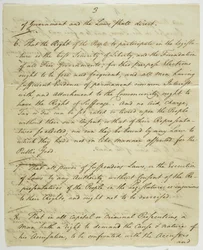 3
of Government and the Laws shall direct.
6. That the Right of the People to participate in the Legisla-
ture is the best Security of Liberty and the Foundation
of all Free Government; for this Purpose Elections
ought to be free and frequent, and all Men having
sufficient Evidence of permanent common Interest
with, and Attachment to the Community, ought to
have the Right of Suffrage. And no Aid, Charge,
Tax or Fee can be set, rated or levied upon the People
without their own Consent or that of their Representa-
tives so elected, nor are they bound by any Law to
which they have not in like manner assented for the
public Good.
That all power of suspending Laws, or the Execution
of Laws, by any Authority without Consent of the
Representatives of the People in the Legislature, is injurious
to their Rights, and ought not to be exercised.
That in all Capital or Criminal Prosecutions, a
Man hath a Right to demand the Cause & nature of
his Accusation, to be confronted with the Accusers
and